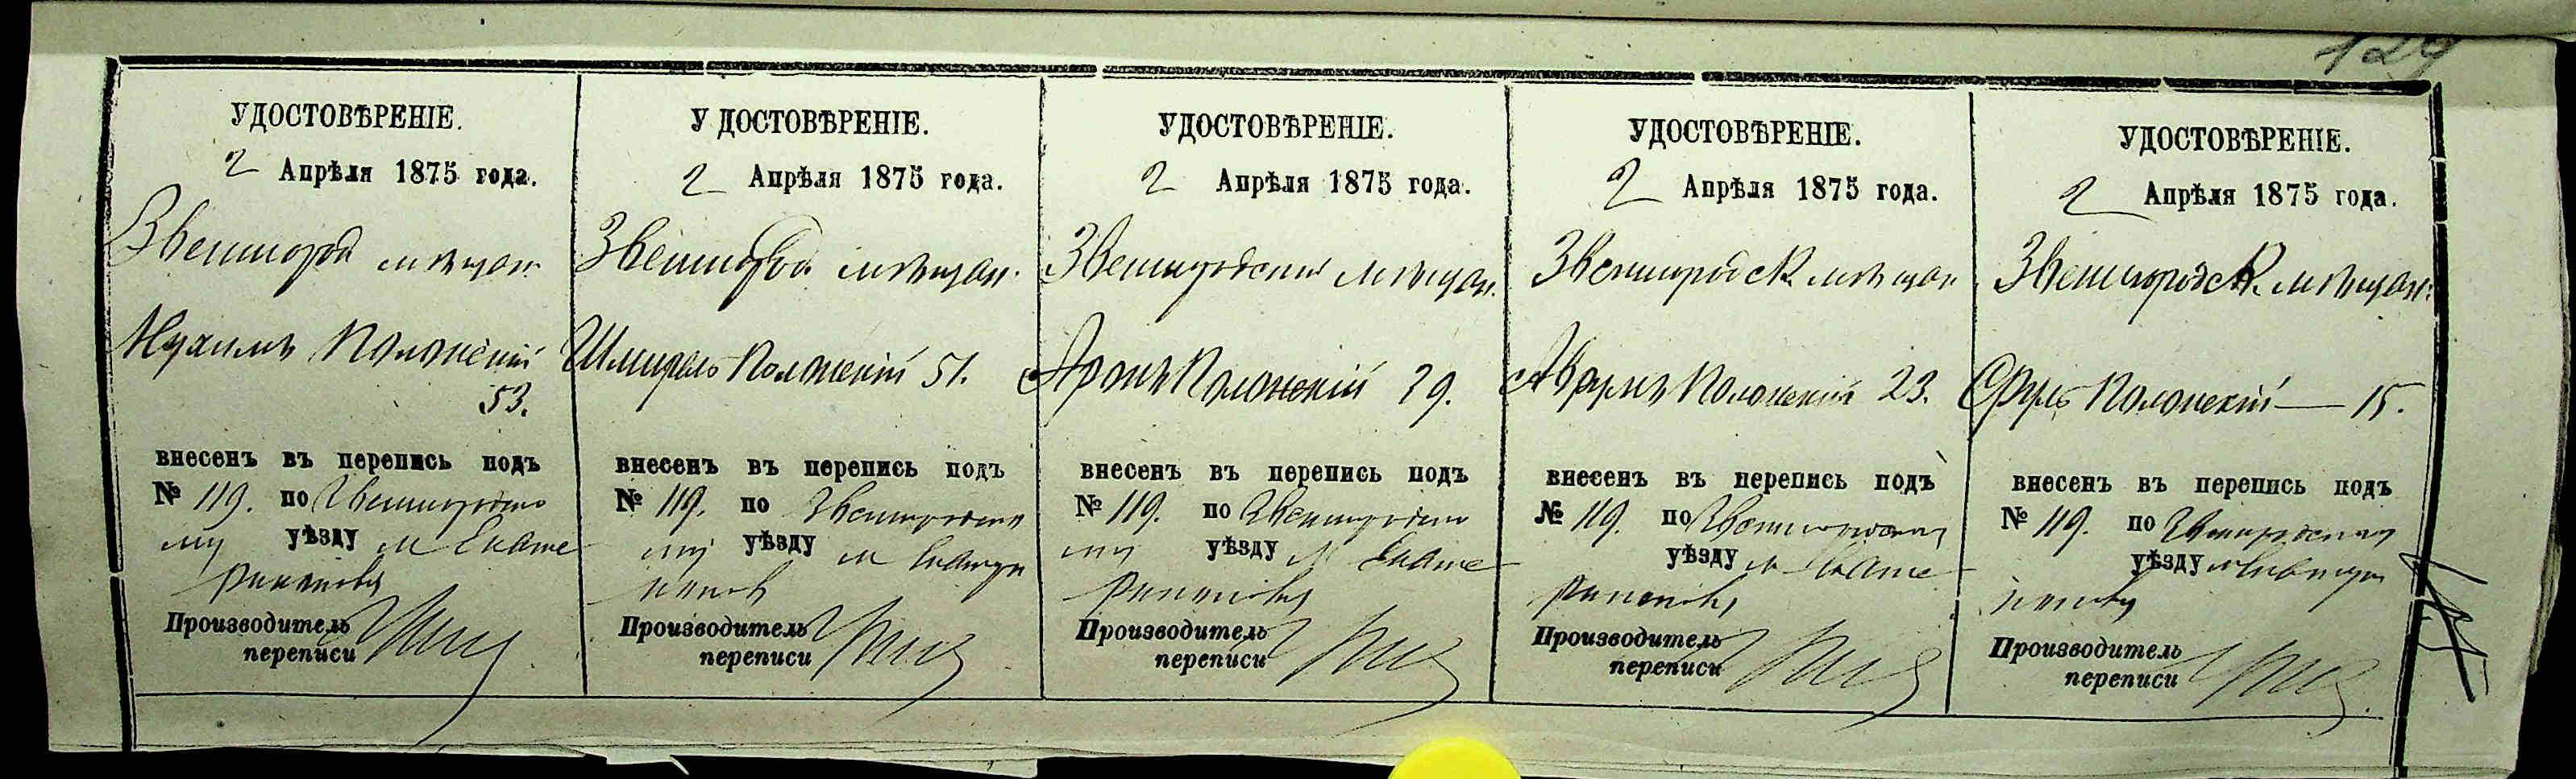 129
УДОСТОВѢРЕНІЕ.
2 Апрѣля 1875 года.
Звенигород мѣщан.
Нухимъ Полонскій
53.
внесенъ въ перепись подъ
№ 119. по Звенигородско
му уѣзду м Екате
ринополь
Производитель
переписи
УДОСТОВѢРЕНІЕ.
2 Апрѣля 1875 года.
Звенигород. мѣщан.
Шмирель Полонскій 51.
внесенъ въ перепись подъ
№ 119. по Звенигородско
му уѣзду м
Производитель
переписи
УДОСТОВѢРЕНІЕ.
2 Апрѣля 1875 года.
Звенигородскій мѣщан.
Аронъ Полонскій 29.
внесенъ въ перепись подъ
№ 119. по Звенигородско
му уѣзду м Екате
Производитель
переписи
УДОСТОВѢРЕНІЕ.
2 Апрѣля 1875 года.
Звенигородск. мѣщан
Аврумъ Полонскій 23.
внесенъ въ перепись подъ
№ 119. по Звенигородскому
уѣзду м Екате
Производитель
переписи
УДОСТОВѢРЕНІЕ.
2 Апрѣля 1875 года.
Звенигородск. мѣщан.
Сруль Полонскій — 15.
внесенъ въ перепись подъ
№ 119. по Звенигородскому
уѣзду м
Производитель
переписи